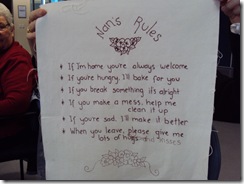 Nan's Rules
If I'm home you're always welcome
If you're hungry, I'll bake for you
If you break something it's alright
If you make a mess, help me
clean it up
If you're sad, I'll make it better
When you leave, please give me
lots of hugs & kisses